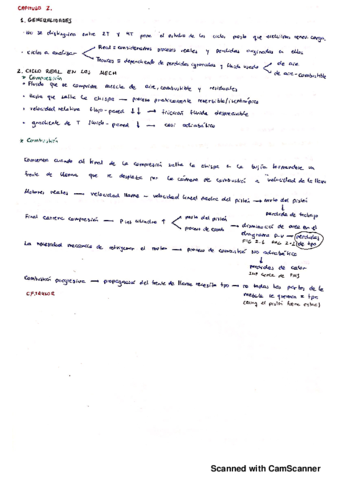 CAPITULO 2.
1. GENERALIDADES
- No se distinguirá entre 2T y 4T para el estudio de los ciclos puesto que evolucionan
- Ciclos a analizar
Real = consideramos procesos reales y perdidas originadas en ellos
Teoricos = dependiendo de perdidas ignoradas y fluido usado
de aire
de aire-combustible
2. CICLO REAL EN LOS MECH
* Compresión
* Fluido que se comprime mezcla de aire, combustible y residuales
* hasta que salta la chispa → proceso prácticamente reversible/isentrópico
* velocidad relativa flujo-pared ↓↓ → fricción fluido despreciable
* gradiente de T fluido-pared ↓ → casi adiabático
* Combustión
Comienza cuando al final de la compresión salta la chispa en la bujía formandose un
frente de llama que se desplaza por la cámara de combustión a velocidad de la llama
Motores reales → velocidad llama ~ velocidad lineal media del pistón → del pistón
perdida de trabajo
Final carrera compresión → P cilindro ↑
del pistón
→ disminución de area en el
diagrama p-V → perdidas
FIG 2.1 2.2 de tpo
La necesidad mecanica de refrigerar el motor → proceso de combustión no adiabático
perdidas de calor
Combustión progresiva → propagacion del frente de llama necesita tpo → no todas las partes de la
mezcla se queman a tpo
Scanned with CamScanner